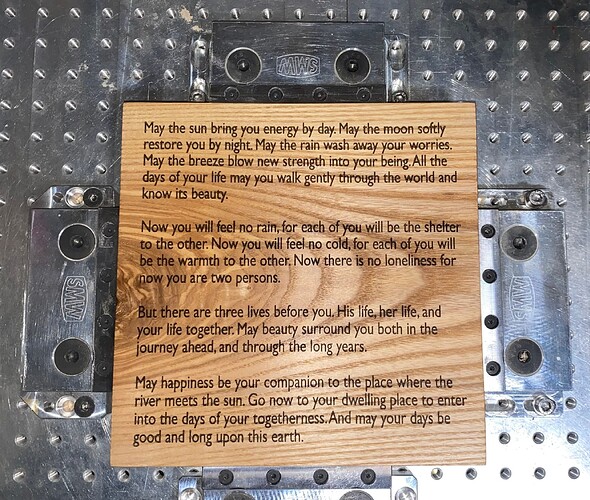 MWS
May the sun bring you energy by day. May the moon softly
restore you by night. May the rain wash away your worries.
May the breeze blow new strength into your being. All the
days of your life may you walk gently through the world and
know its beauty.
Now you will feel no rain, for each of you will be the shelter
to the other. Now you will feel no cold, for each of you will
be the warmth to the other. Now there is no loneliness for
now you are two persons.
But there are three lives before you. His life, her life, and
your life together. May beauty surround you both in the
journey ahead, and through the long years.
May happiness be your companion to the place where the
river meets the sun. Go now to your dwelling place to enter
into the days of your togetherness. And may your days be
good and long upon this earth.